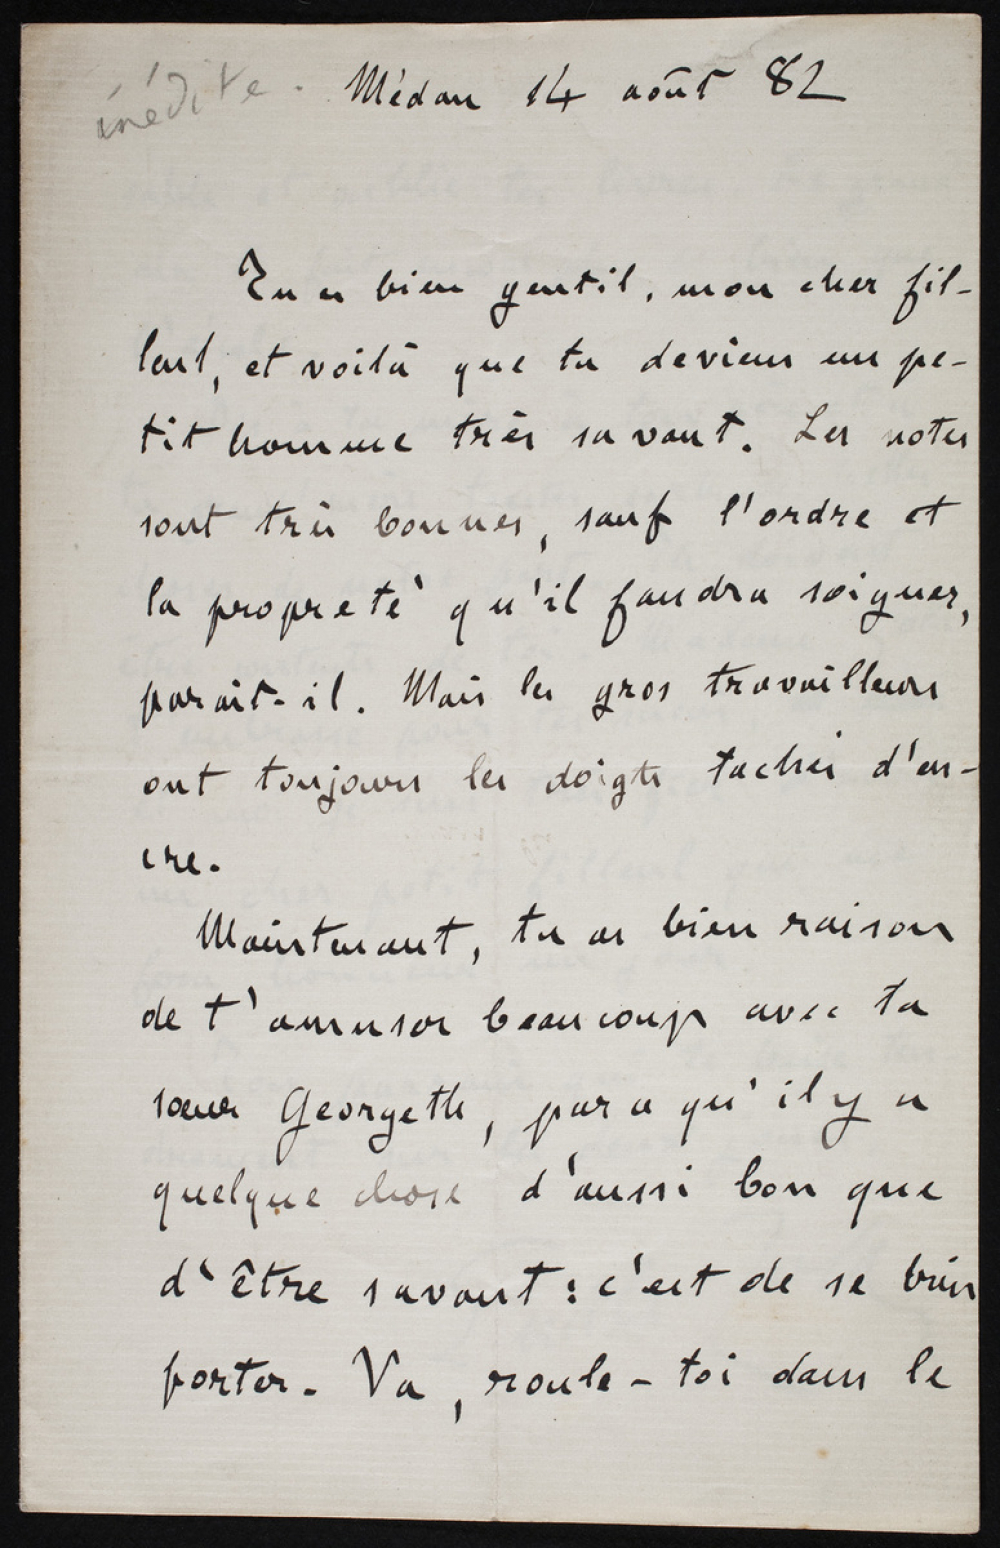 inédite. Médan 14 août 82
Tu es bien gentil, mon cher fil-
leul, et voilà que tu deviens un pe-
tit homme très savant. Les notes
sont très bonnes, sauf l'ordre et
la propreté qu'il faudra soigner,
paraît-il. Mais les gros travailleurs
ont toujours les doigts tachés d'en-
cre.
Maintenant, tu as bien raison
de t'amuser beaucoup avec ta
sœur Georgette, parce qu'il y a
quelque chose d'aussi bon que
d'être savant : c'est de se bien
porter. Va, roule-toi dans le